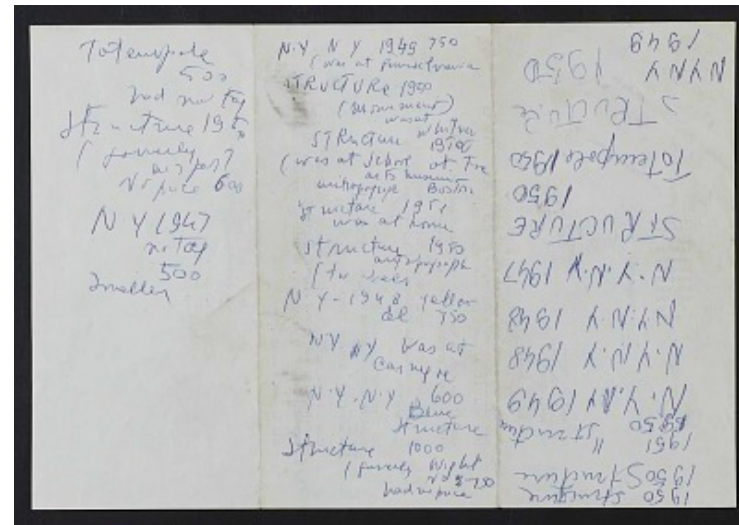 Totempole
500
had no tag
Structure 1950
(formerly
No price 600
N Y 1947
no tag
500
Smaller
N.Y N Y 1949 750
(was at Pennsylvania
STRUCTURE 1950
(monument)
was at
Structure Whitney
1950
(was at School of Fine
arts museum
Boston
Structure 1951
was at home
Structure 1950
N Y - 1948 yellow
750
NY NY was at
Carnegie
N.Y - N.Y 600
Blue
Structure
Structure 1000
(formerly Wight
had no price
1950 Structure
1950 Structure
1951 " Structure
1950
N.Y.N.Y 1949
N.Y.N.Y 1948
N.Y.N.Y 1948
N.Y.N.Y 1947
STRUCTURE
1950
Totempole 1950
STRUCTURE
NYNY 1950
1949